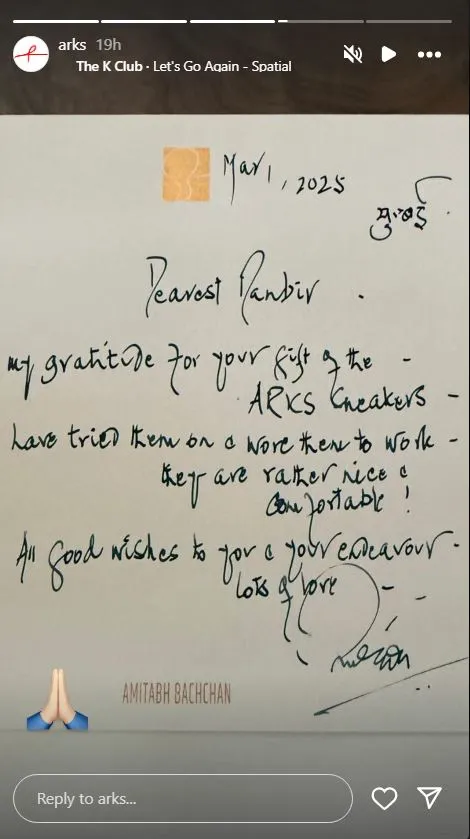 arks 19h
The K Club · Let's Go Again - Spatial
Mar 1, 2025
मुंबई
Dearest Ranbir .
my gratitude for your gift of the -
ARKS Sneakers -
have tried them on & wore them to work -
they are rather nice &
comfortable !
All good wishes to you & your endeavour -
lots of love -
AMITABH BACHCHAN
Reply to arks...